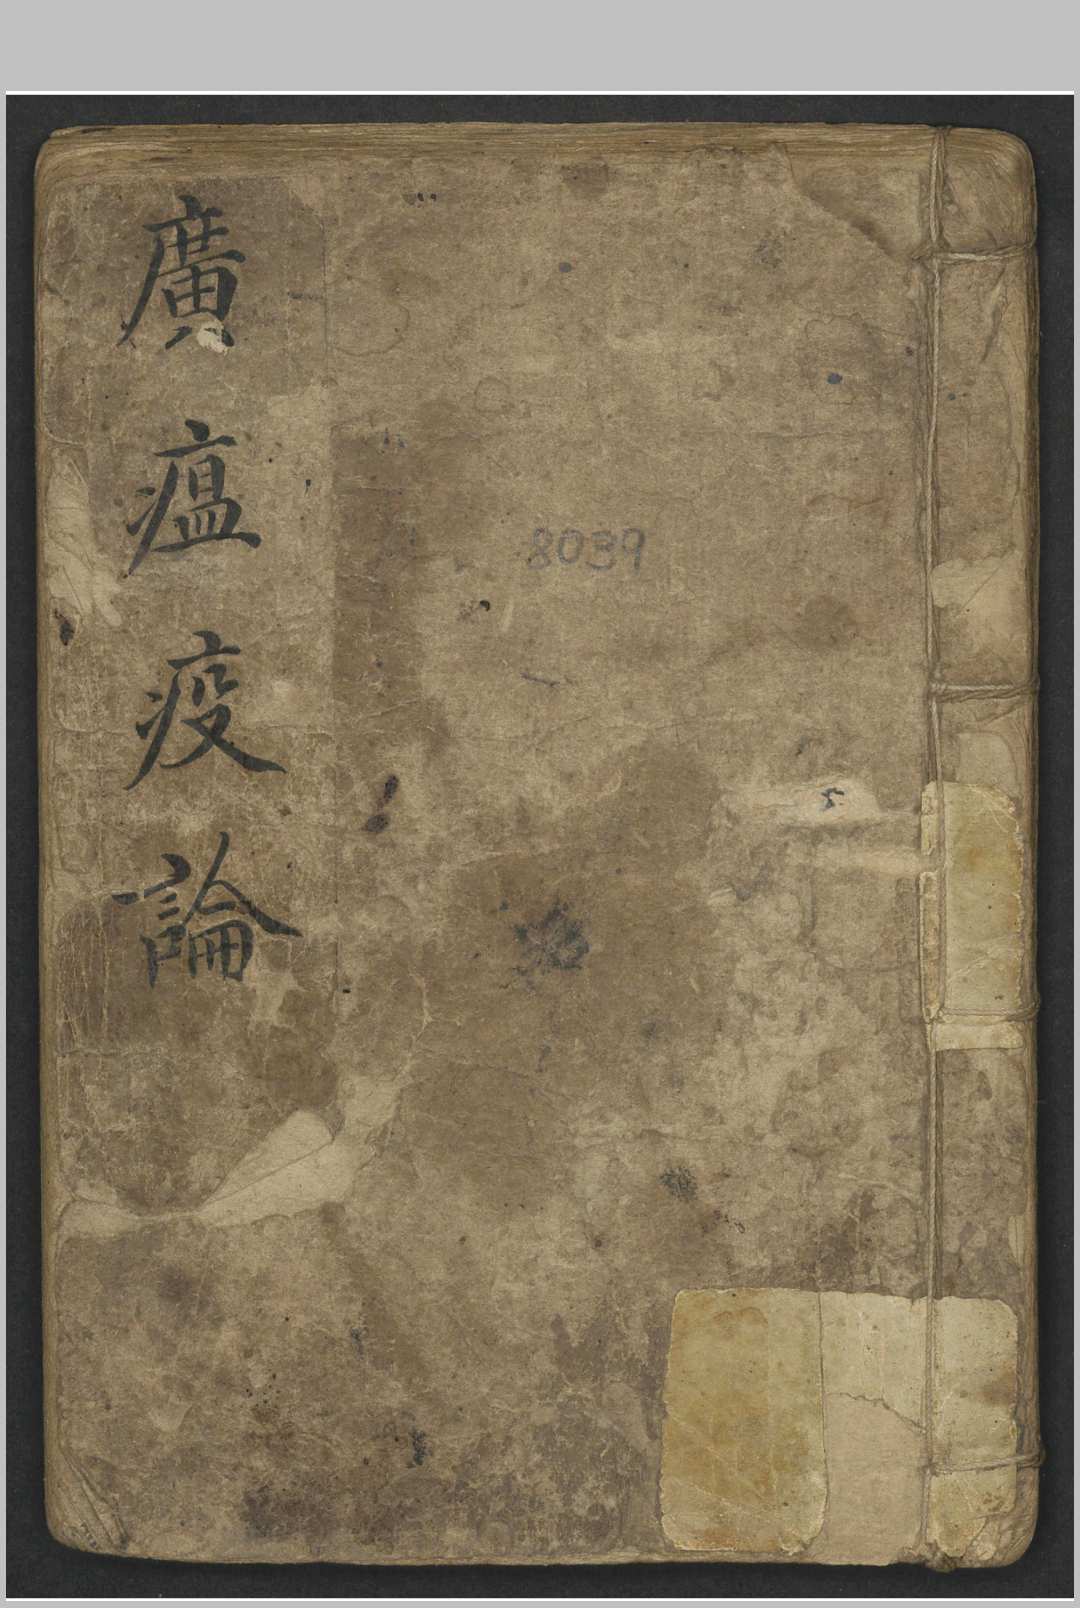 廣瘟疫論
8039